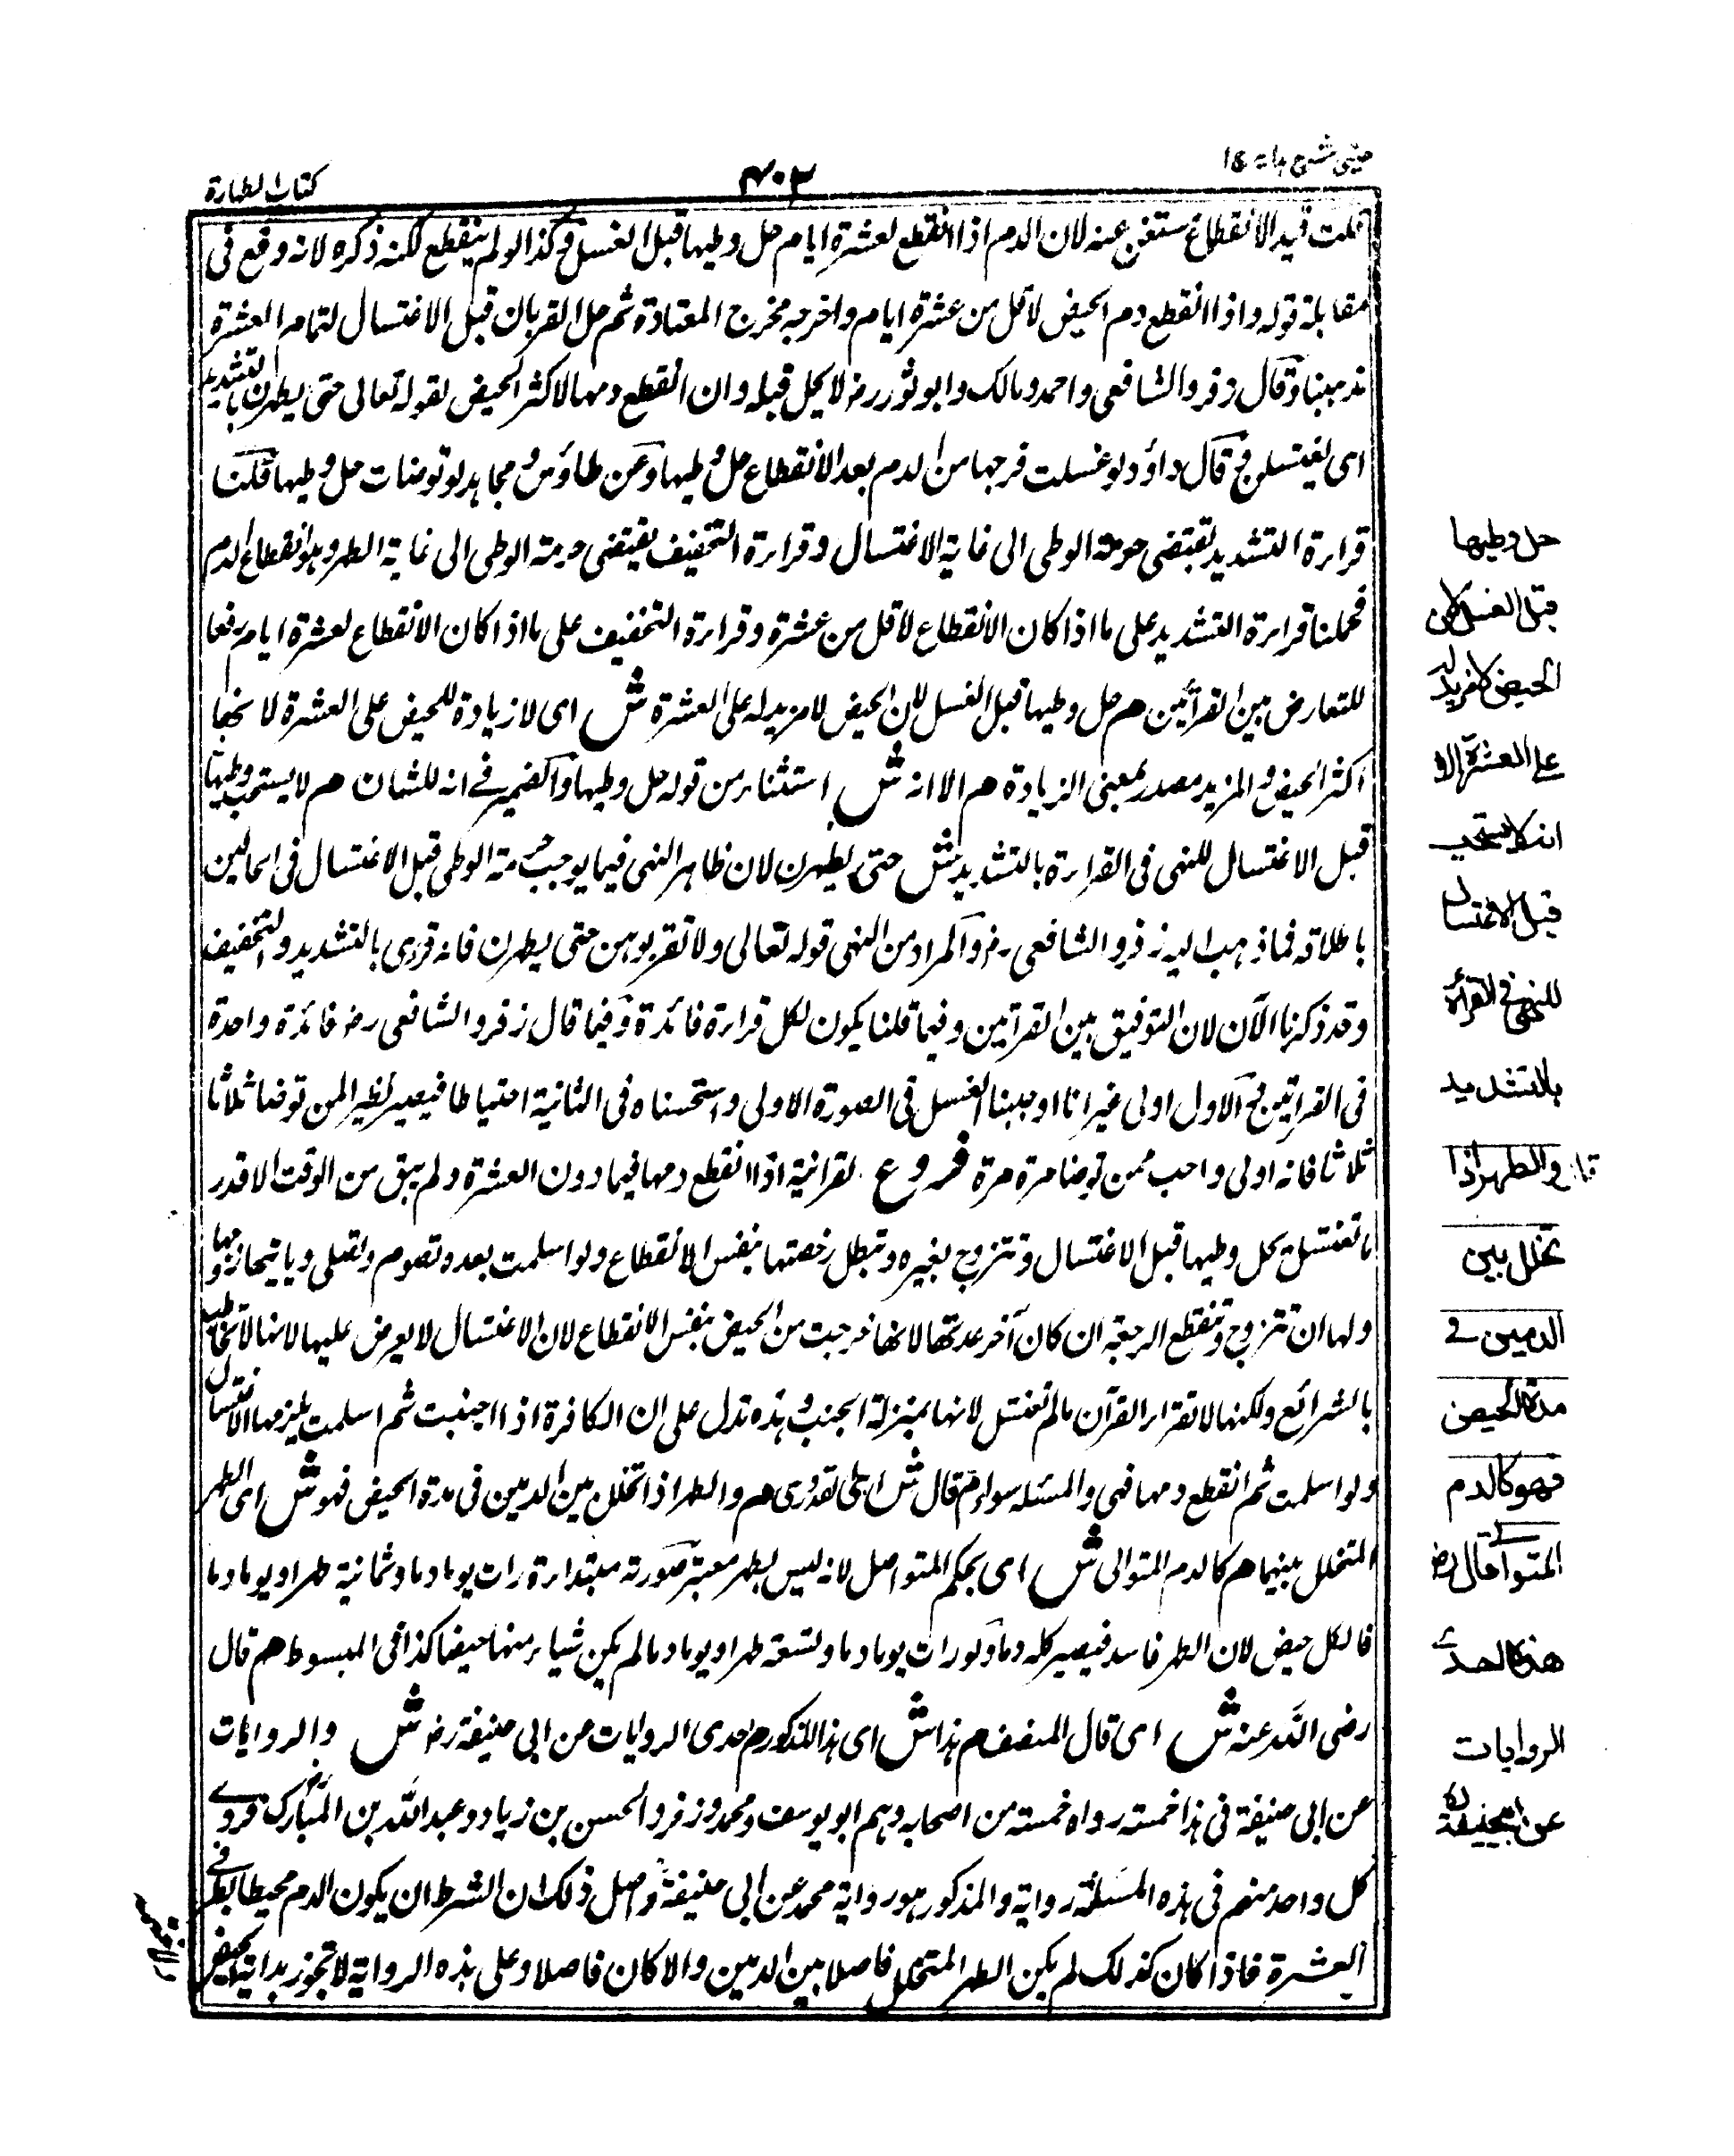 عینی شرح هدایة ج ۱
۴۰۳
کتاب الطهارة
قلت قید الانقطاع مستغنی عنه لان الدم اذا انقطع لعشرة ایام حل وطیها قبل الغسل وکذا لو لم ینقطع لکنه ذکره لانه وقع فی
مقابلة قوله واذا انقطع دم الحیض لاقل من عشرة ایام واخرجه مخرج المعتادة ثم حل القربان قبل الاغتسال لتمام العشرة
مذهبنا وقال زفر والشافعی واحمد ومالک وابو ثور رض لا یحل قبله وان انقطع دمها لاکثر الحیض لقوله تعالی حتی یطهرن بالتشدید
ای یغتسلن وقال داؤد لو غسلت فرجها من الدم بعد الانقطاع حل وطیها وعن طاؤس ومجاهد لو توضأت حل وطیها قلنا
قراءة التشدید تقتضی حرمة الوطی الی غایة الاغتسال وقراءة التخفیف یقتضی حرمة الوطی الی غایة الطهر وهو انقطاع الدم
فحملنا قراءة التشدید علی ما اذا کان الانقطاع لاقل من عشرة وقراءة التخفیف علی ما اذا کان الانقطاع لعشرة ایام رفعا
للتعارض بین القرأتین هم حل وطیها قبل الغسل لان الحیض لا مزید له علی العشرة ش ای لا زیادة للحیض علی العشرة لانها
اکثر الحیض والمزید مصدر بمعنی الزیادة هم الا انه ش استثناء من قوله حل وطیها والضمیر فی انه للشان هم لا یستحب وطیها
قبل الاغتسال للنهی فی القراءة بالتشدید ش حتی یطهرن لان ظاهر النهی فیها یوجب حرمة الوطی قبل الاغتسال فی الحالین
باطلاقه فما ذهب الیه زفر والشافعی رض والمراد من النهی قوله تعالی ولا تقربوهن حتی یطهرن فانه قری بالتشدید والتخفیف
وقد ذکرنا الآن لان التوفیق بین القرأتین وفیما قلنا یکون لکل قراءة فائدة وفیما قال زفر والشافعی رض فائدة واحدة
فی القرأتین والاول اولی غیر انا اوجبنا الغسل فی الصورة الاولی واستحسناه فی الثانیة احتیاطا فیصیر نظیر المن توضا ثلاثا
ثلاثا فانه اولی واحب ممن توضا مرة مرة فروع نصرانیة اذا انقطع دمها فیما دون العشرة ولم یبق من الوقت الا قدر
ما تغتسل یحل وطیها قبل الاغتسال وتتزوج بغیره وتبطل رخصتها بنفس الانقطاع ولو اسلمت بعده تصوم وتصلی ویاتیها زوجها
ولها ان تتزوج وتنقطع الرجعة ان کان آخر عدتها لانها خرجت من الحیض بنفس الانقطاع لان الاغتسال لا یعرض علیها لانها لا تخاطب
بالشرائع ولکنها لا تقرا القرآن ما لم تغتسل لانها بمنزلة الجنب وهذه تدل علی ان الکافرة اذا اجنبت ثم اسلمت یلزمها الاغتسال
ولو اسلمت ثم انقطع دمها فهی والمسئلة سواء م قال ش ای القدوری هم والطهر اذا تخلل بین الدمین فی مدة الحیض فهو ش ای الطهر
المتخلل بینهما هم کالدم المتوالی ش ای بحکم المتواصل لانه لیس بطهر معتبر صورته مبتداءة رأت یوما دما وثمانیة طهرا ویوما دما
فالکل حیض لان الطهر فاسد فیصیر کله دما ولو رات یوما دما وتسعة طهرا ویوما دما لم یکن شیاء منها حیضا کذا فی المبسوط هم قال
رضی الله عنه ش ای قال المصنف م هذا ش ای هذا المذکور م احدی الروایات عن ابی حنیفة رض ش والروایات
عن ابی حنیفة فی هذا خمسة رواه خمسة من اصحابه وهم ابو یوسف ومحمد وزفر والحسن بن زیاد وعبد الله بن المبارک فروی
کل واحد منهم فی هذه المسئلة روایة والمذکور هو روایة محمد عن ابی حنیفة واصل ذلک ان الشرط ان یکون الدم محیطا بطرفی
العشرة فاذا کان کذلک لم یکن الطهر المتخلل فاصلا بین الدمین والا کان فاصلا وعلی هذه الروایة لا تجوز بدایة الحیض
حل وطیها
قبل الغسل لان
الحیض لا مزید له
علی العشرة الا
انه لا یستحب
قبل الاغتسال
للنهی فی القرأة
بالتشدید
قال والطهر اذا
تخلل بین
الدمین فی
مدة الحیض
فهو کالدم
المتوالی قال رض
هذا احدی
الروایات
عن ابی حنیفة